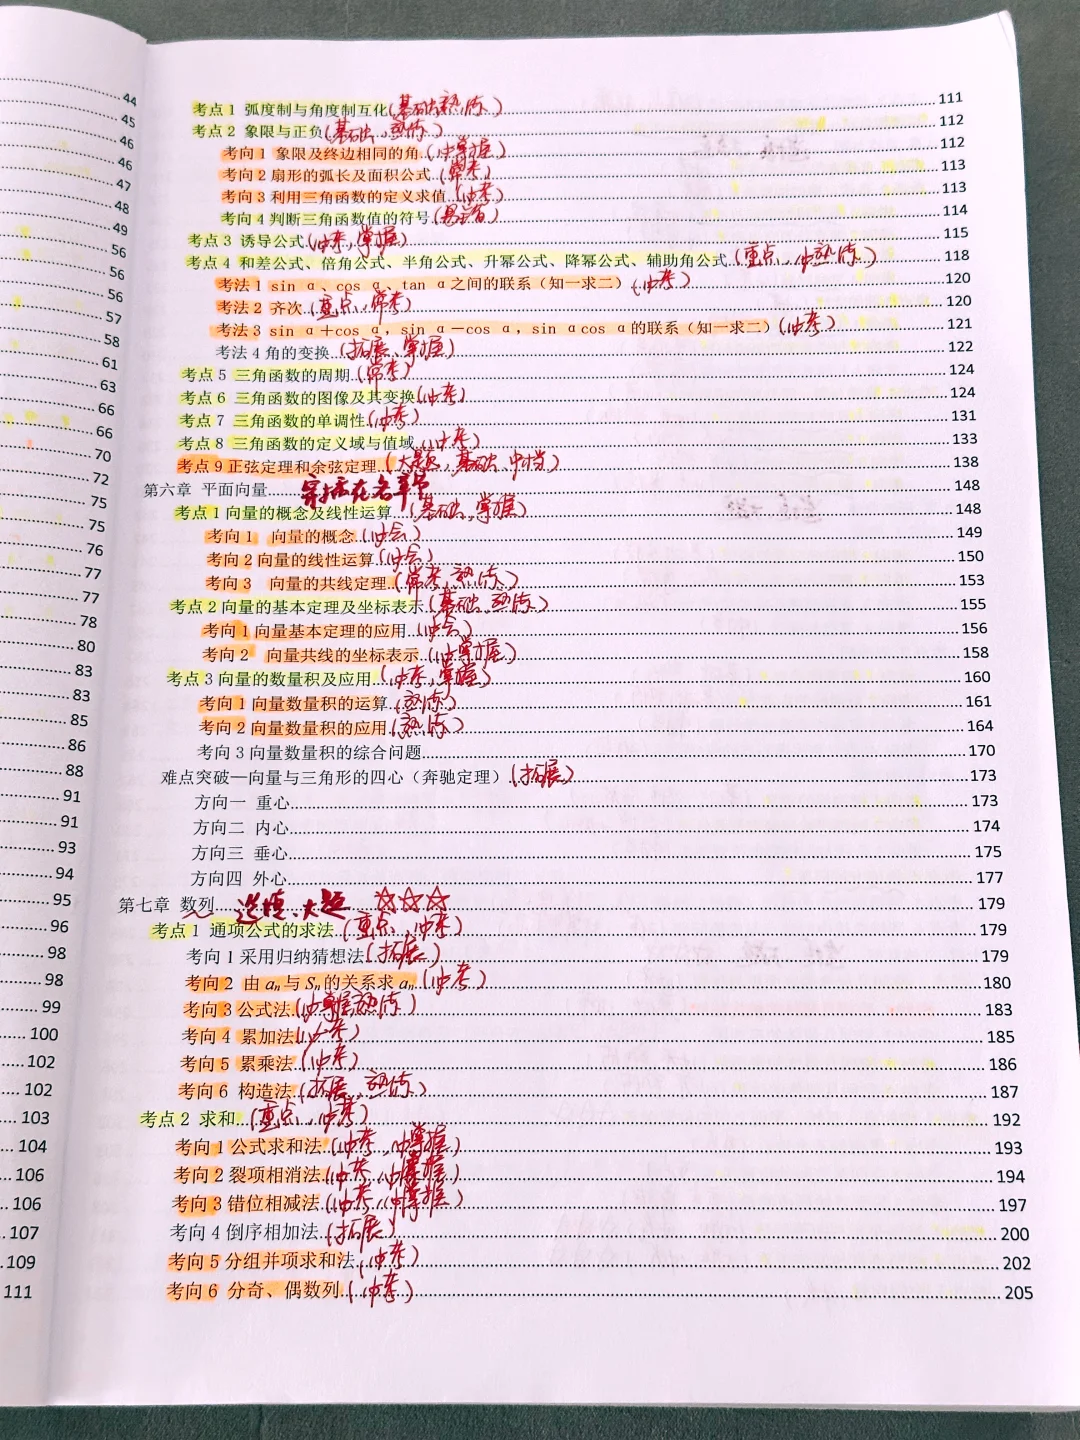 44
45
46
46
47
48
49
56
56
56
57
58
61
63
66
66
70
72
75
75
76
77
77
78
80
83
83
85
86
88
91
91
93
94
95
96
98
98
99
100
102
102
103
104
106
106
107
109
111
考点1 弧度制与角度制互化(基础,熟练) 111
考点2 象限与正负(基础、熟练) 112
考向1 象限及终边相同的角(必掌握) 112
考向2 扇形的弧长及面积公式(常考) 113
考向3 利用三角函数的定义求值(必考) 113
考向4 判断三角函数值的符号 114
考点3 诱导公式(必考,掌握) 115
考点4 和差公式、倍角公式、半角公式、升幂公式、降幂公式、辅助角公式(重点,必熟练) 118
考法1 sin α、cos α、tan α之间的联系(知一求二)(必考) 120
考法2 齐次(重点,常考) 120
考法3 sin α+cos α,sin α-cos α,sin αcos α的联系(知一求二)(必考) 121
考法4 角的变换(拓展、掌握) 122
考点5 三角函数的周期(常考) 124
考点6 三角函数的图像及其变换(必考) 124
考点7 三角函数的单调性(必考) 131
考点8 三角函数的定义域与值域(必考) 133
考点9 正弦定理和余弦定理(大题,基础,中档) 138
第六章 平面向量 穿插在各章节 148
考点1 向量的概念及线性运算(基础,掌握) 148
考向1 向量的概念(必会) 149
考向2 向量的线性运算(必会) 150
考向3 向量的共线定理(常考,熟练) 153
考点2 向量的基本定理及坐标表示(基础,熟练) 155
考向1 向量基本定理的应用(必会) 156
考向2 向量共线的坐标表示(必掌握) 158
考点3 向量的数量积及应用(必考,掌握) 160
考向1 向量数量积的运算(熟练) 161
考向2 向量数量积的应用(熟练) 164
考向3 向量数量积的综合问题 170
难点突破—向量与三角形的四心(奔驰定理)(拓展) 173
方向一 重心 173
方向二 内心 174
方向三 垂心 175
方向四 外心 177
第七章 数列 选填、大题 ☆☆☆ 179
考点1 通项公式的求法(重点,必考) 179
考向1 采用归纳猜想法(拓展) 179
考向2 由aₙ与Sₙ的关系求aₙ(必考) 180
考向3 公式法(必掌握熟练) 183
考向4 累加法(必考) 185
考向5 累乘法(必考) 186
考向6 构造法(拓展,熟练) 187
考点2 求和(重点,必考) 192
考向1 公式求和法(必考,必掌握) 193
考向2 裂项相消法(必考,必掌握) 194
考向3 错位相减法(必考,必掌握) 197
考向4 倒序相加法(拓展) 200
考向5 分组并项求和法(必考) 202
考向6 分奇、偶数列(必考) 205